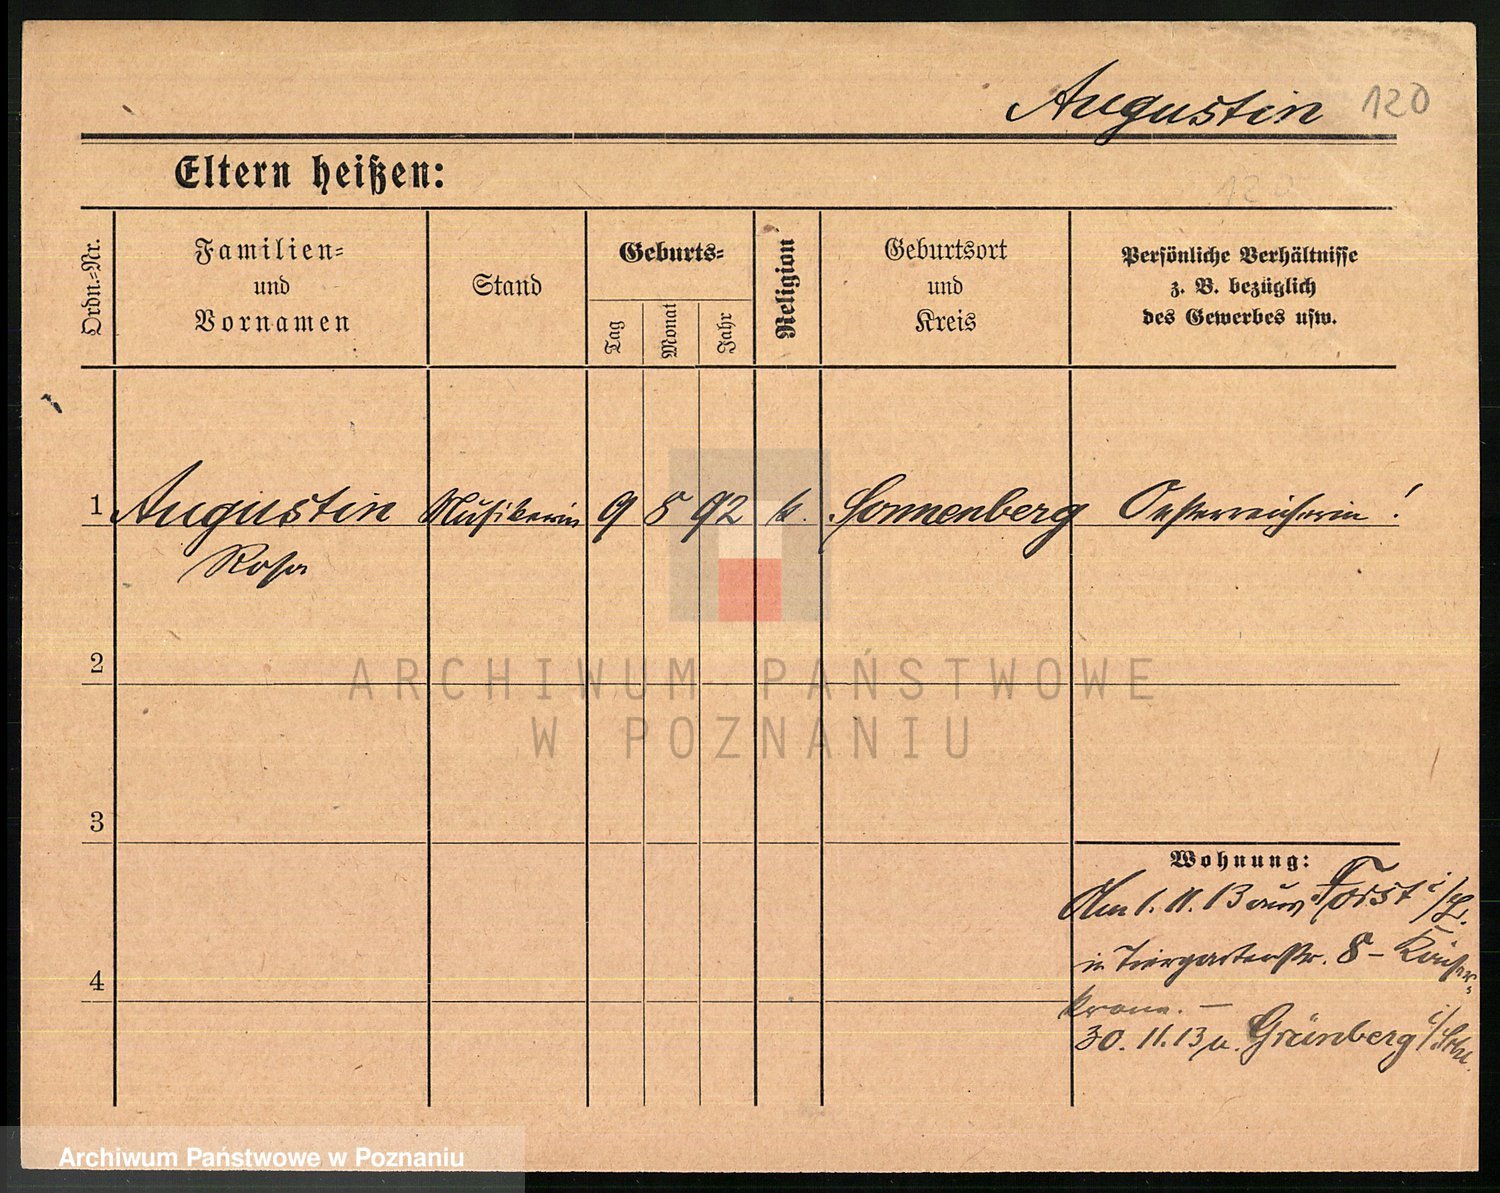 Augustin 120
Eltern heißen:
Ordn.-Nr.
Familien-
und
Vornamen
Stand
Geburts-
Tag
Monat
Jahr
Religion
Geburtsort
und
Kreis
Persönliche Verhältnisse
z. B. bezüglich
des Gewerbes usw.
1 Augustin Musikerin 9 8 92 k. Sonnenberg Oesterreicherin!
Rosa
2
3
4
Wohnung:
Am 1. 11. 13 aus Forst i/L.
in Tiergartenstr. 8 - Kaiser-
krone. -
30. 11. 13 n. Grünberg i/Schl.
ARCHIWUM PAŃSTWOWE
W POZNANIU
Archiwum Państwowe w Poznaniu